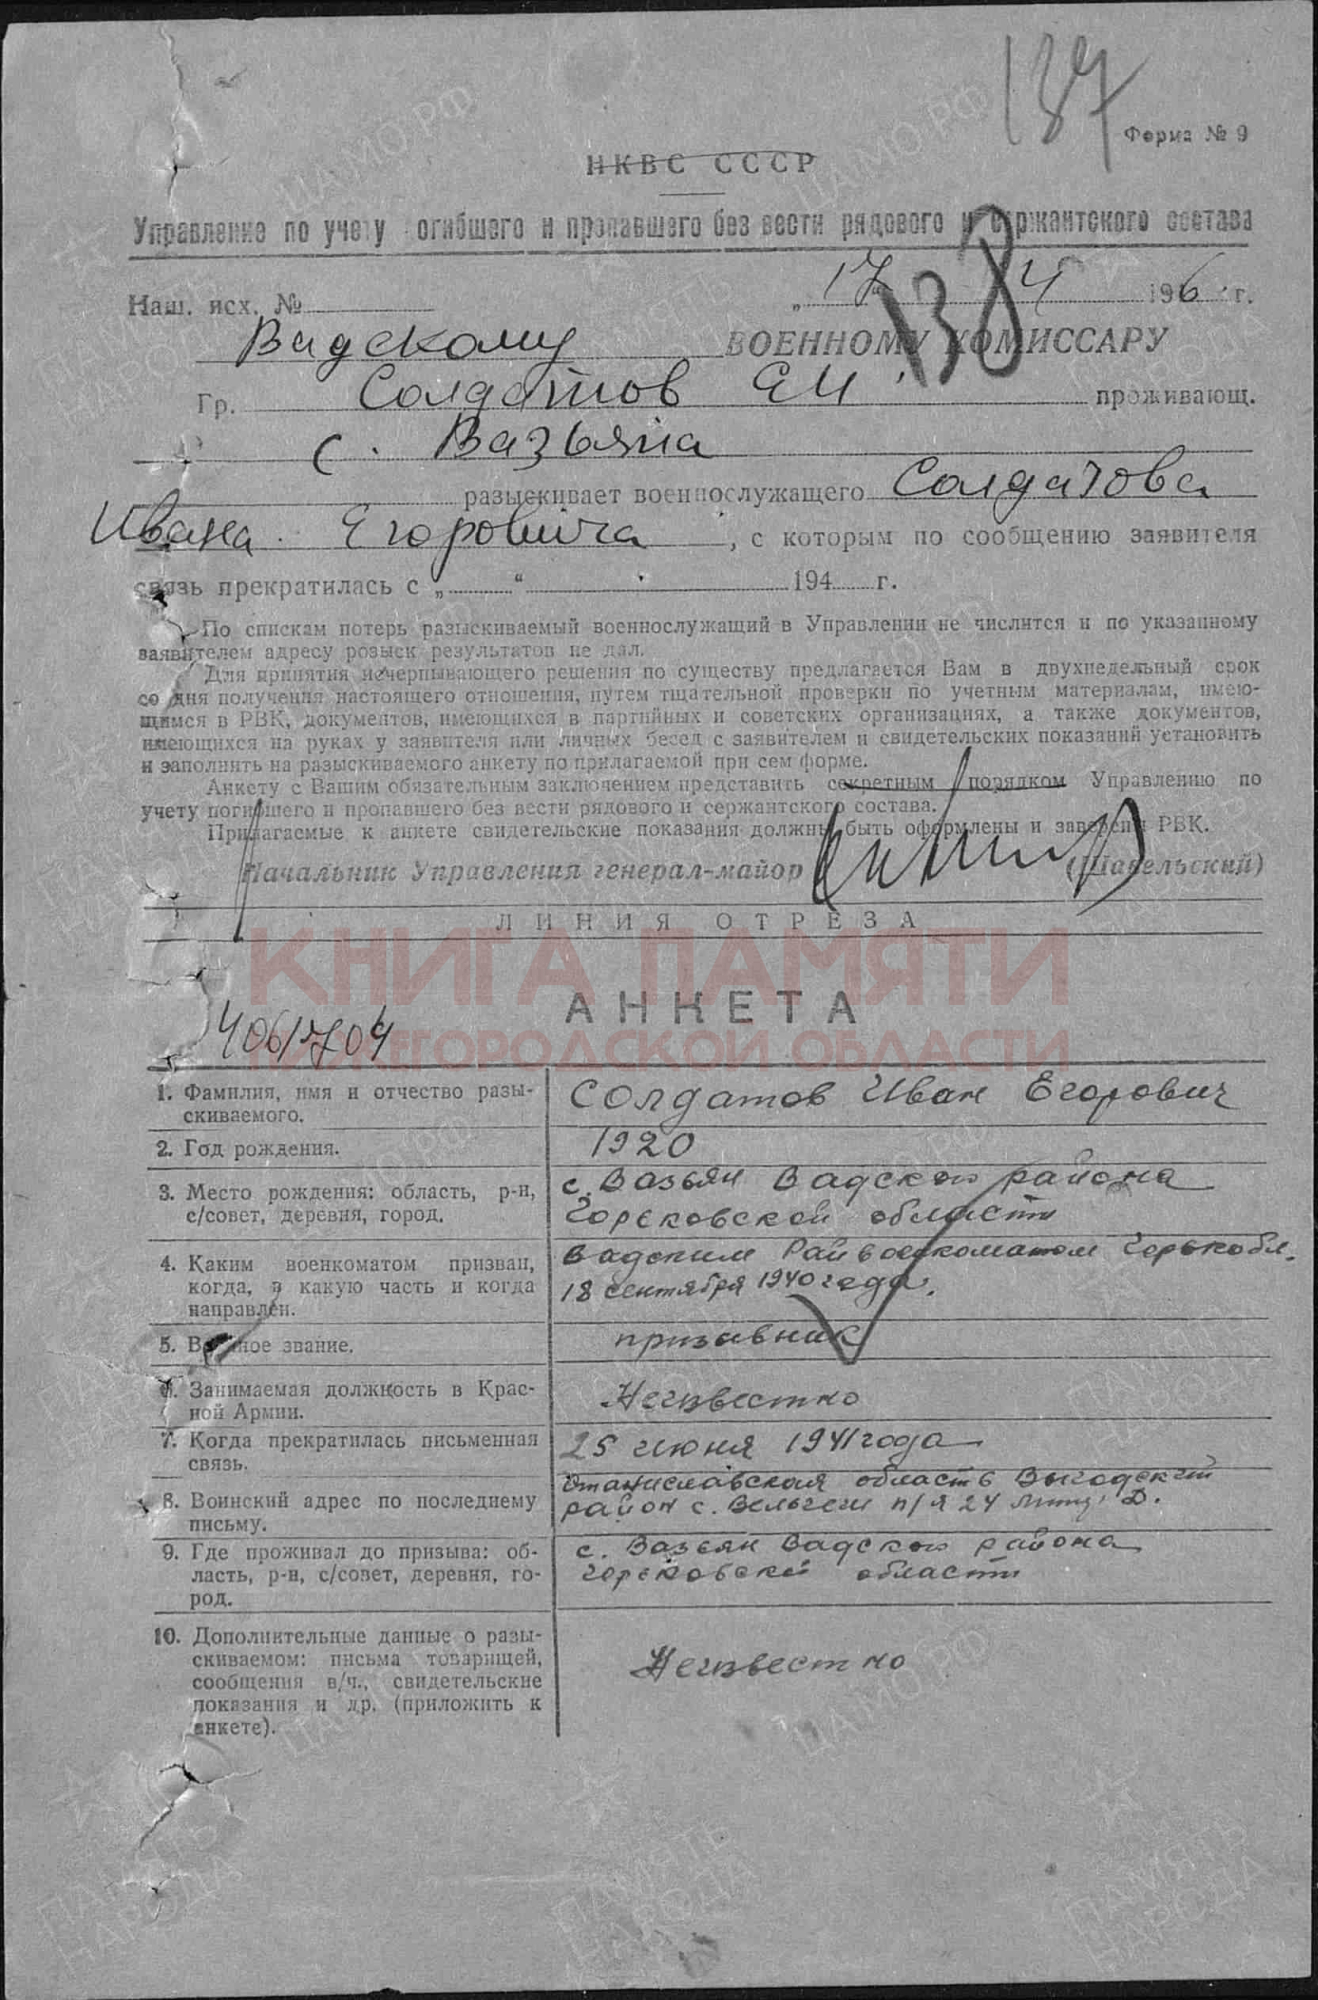 137
Форма № 9
НКВС СССР
Управление по учету погибшего и пропавшего без вести рядового и сержантского состава
138
Наш. исх. № „17“ 4 1946 г.
Вадскому ВОЕННОМУ КОМИССАРУ
Гр. Солдатов Е И проживающ.
с. Вазьяна
разыскивает военнослужащего Солдатова
Ивана Егоровича, с которым по сообщению заявителя
связь прекратилась с „ “ 194 г.
По спискам потерь разыскиваемый военнослужащий в Управлении не числится и по указанному
заявителем адресу розыск результатов не дал.
Для принятия исчерпывающего решения по существу предлагается Вам в двухнедельный срок
со дня получения настоящего отношения, путем тщательной проверки по учетным материалам, имею-
щимся в РВК, документов, имеющихся в партийных и советских организациях, а также документов,
имеющихся на руках у заявителя или личных бесед с заявителем и свидетельских показаний установить
и заполнить на разыскиваемого анкету по прилагаемой при сем форме.
Анкету с Вашим обязательным заключением представить секретным порядком Управлению по
учету погибшего и пропавшего без вести рядового и сержантского состава.
Прилагаемые к анкете свидетельские показания должны быть оформлены и заверены РВК.
Начальник Управления генерал-майор (Шавельский)
ЛИНИЯ ОТРЕЗА
КНИГА ПАМЯТИ
НИЖЕГОРОДСКОЙ ОБЛАСТИ
АНКЕТА
406/704
1. Фамилия, имя и отчество разы-
скиваемого.
Солдатов Иван Егорович
2. Год рождения.
1920
3. Место рождения: область, р-н,
с/совет, деревня, город.
с. Вазьян Вадского района
Горьковской области
4. Каким военкоматом призван,
когда, в какую часть и когда
направлен.
Вадским Райвоенкоматом Горькобл.
18 сентября 1940 года.
5. Военное звание.
призывник
6. Занимаемая должность в Крас-
ной Армии.
Неизвестно
7. Когда прекратилась письменная
связь.
25 июня 1941 года
8. Воинский адрес по последнему
письму.
Станиславская область Выгодский
район с. п/я 24 Д.
9. Где проживал до призыва: об-
ласть, р-н, с/совет, деревня, го-
род.
с. Вазьян Вадского района
Горьковской области
10. Дополнительные данные о разы-
скиваемом: письма товарищей,
сообщения в/ч., свидетельские
показания и др. (приложить к
анкете).
Неизвестно